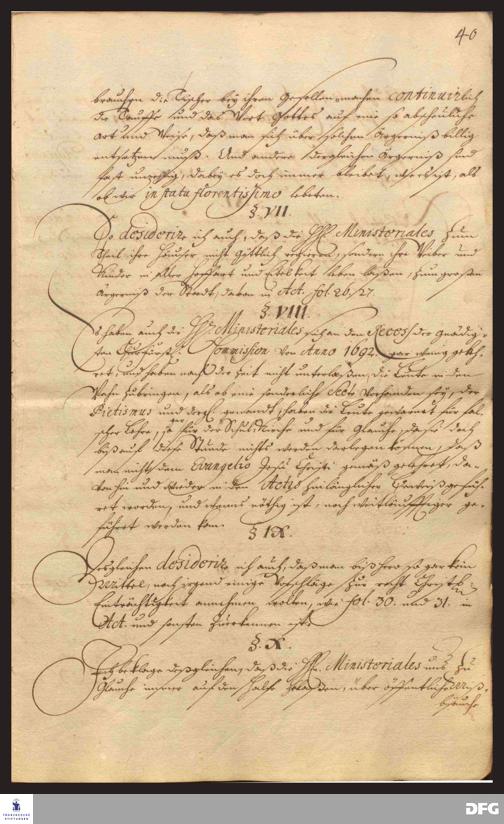 40
brauchen die Tischer bey ihren Gesellen machen continuirlich
die Tauffe und das Wort Gottes auf eine so abscheuliche
art und Weise, daß man sich über solchem Ärgerniß billig
entsetzen muß. Und andere dergleichen Ärgerniß sind
fast unzehlig, dabey es doch immer bleibet, wie es ist, als
ob wir in statu florentissimo lebeten.
§ VII.
So desiderire ich auch, daß die HH. Ministeriales zum
Theil ihre Häuser nicht Göttlich regieren, sondern ihre Weiber und
Kinder in aller Hoffart und Eitelkeit leben laßen, zum großen
Ärgerniß der Stadt, davon in Act. fol. 26/27.
§ VIII.
So haben auch die HH. Ministeriales sich an den Recess der Gnädig-
sten Churfürstl. Commission von Anno 1692. gar wenig gekeh-
ret, und haben nach der Zeit nicht unterlaßen, die Leute in den
Wahn zubringen, als ob eine sonderliche Secte vorhanden sey, der
Pietismus und dergl. genandt, haben die Leute gewarnet für fal-
scher Lehre, für der Schul Kirche und für Glauche, da sie doch
biß auf diese Stunde nichts werden darlegen können, daß
man nicht dem Evangelio Jesu Christi gemäß gelehret, da-
von hin und wieder in den Actis hinlänglicher Beweiß gefüh-
ret worden, und wanns nöthig ist, noch weitläufftiger ge-
führet werden kan.
§ IX.
Desgleichen desiderire ich auch, daß man biß hero so gar kein
Mittel, noch irgend einige Vorschläge zur recht Christl.
Einträchtigkeit annehmen wollen, wie fol. 30. und 31. in
Act. und sonsten zuerkennen ist.
§. X.
Ich beklage deßgleichen, daß die HH. Ministeriales uns zu
Glauche immer auf dem Halse gelaßen, über öffentliche Miß-
bräuche
FRANCKESCHE
STIFTUNGEN
DFG